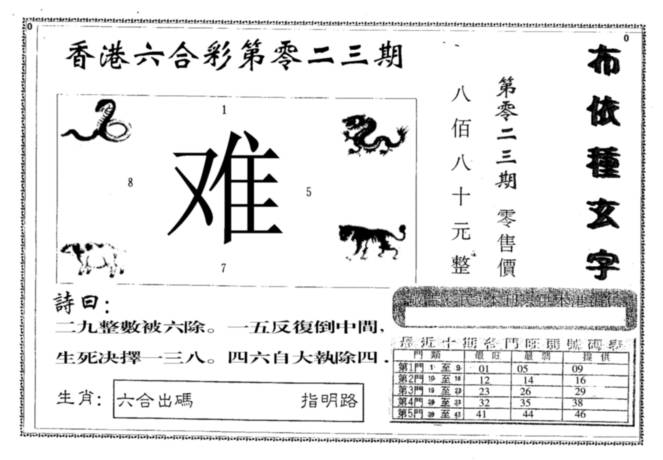 香港六合彩第零二三期
1
8
难
5
7
詩曰：
二九整數被六除。一五反復倒中間，
生死决擇一三八。四六自大執除四．
生肖：
六合出碼 指明路
八佰八十元整
第零二三期 零售價
布依種玄字
最近十期各門旺開號碼表
門類 最旺 最弱 提供
第1門 1 至 9 01 05 09
第2門 10 至 18 12 14 16
第3門 至 23 26 29
第4門 至 32 35 38
第5門 至 41 44 46
0
0